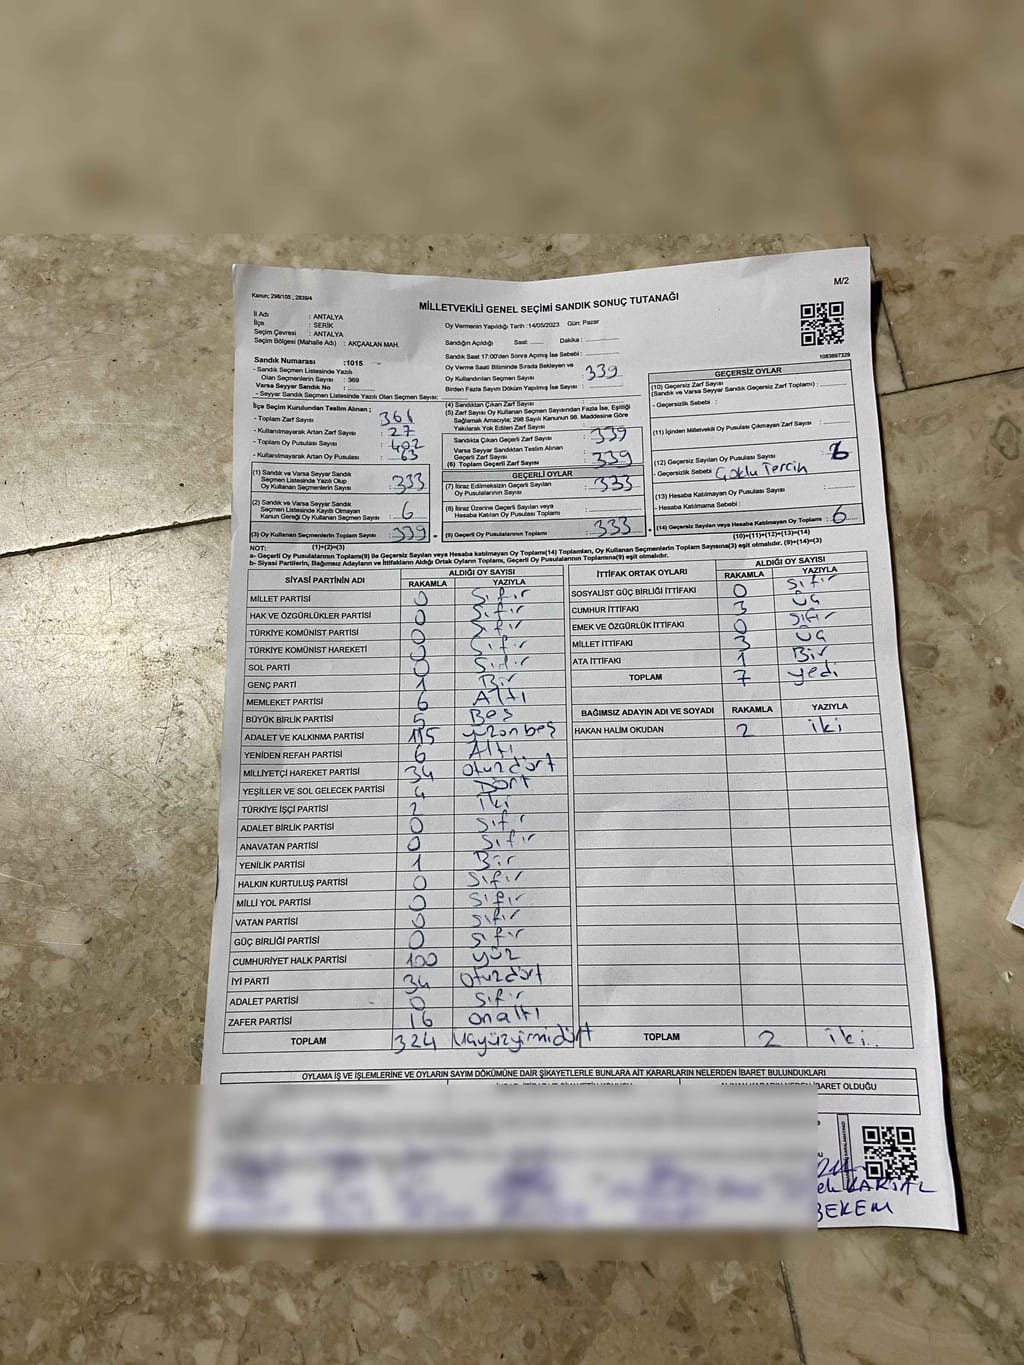 Kanun; 298/105 , 2839/4
M/2
MİLLETVEKİLİ GENEL SEÇİMİ SANDIK SONUÇ TUTANAĞI
İl Adı : ANTALYA
İlçe : SERİK
Seçim Çevresi : ANTALYA
Seçim Bölgesi (Mahalle Adı) : AKÇAALAN MAH.
Oy Vermenin Yapıldığı Tarih :14/05/2023 Gün: Pazar
Sandığın Açıldığı Saat: Dakika :
Sandık Saat 17:00'den Sonra Açılmış İse Sebebi :
Oy Verme Saati Bitiminde Sırada Bekleyen ve
Oy Kullandırılan Seçmen Sayısı : 339
Birden Fazla Sayım Döküm Yapılmış İse Sayısı :
1083697329
Sandık Numarası :1015
- Sandık Seçmen Listesinde Yazılı
Olan Seçmenlerin Sayısı : 369
Varsa Seyyar Sandık No :
- Seyyar Sandık Seçmen Listesinde Yazılı Olan Seçmen Sayısı:
İlçe Seçim Kurulundan Teslim Alınan ;
- Toplam Zarf Sayısı : 361
- Kullanılmayarak Artan Zarf Sayısı : 27
- Toplam Oy Pusulası Sayısı : 402
- Kullanılmayarak Artan Oy Pusulası : 63
(1) Sandık ve Varsa Seyyar Sandık
Seçmen Listesinde Yazılı Olup
Oy Kullanan Seçmenlerin Sayısı : 333
(2) Sandık ve Varsa Seyyar Sandık
Seçmen Listesinde Kayıtlı Olmayan
Kanun Gereği Oy Kullanan Seçmen Sayısı : 6
(3) Oy Kullanan Seçmenlerin Toplam Sayısı : 339
(1)+(2)=(3)
(4) Sandıktan Çıkan Zarf Sayısı :
(5) Zarf Sayısı Oy Kullanan Seçmen Sayısından Fazla İse, Eşitliği
Sağlamak Amacıyla; 298 Sayılı Kanunun 98. Maddesine Göre
Yakılarak Yok Edilen Zarf Sayısı :
Sandıkta Çıkan Geçerli Zarf Sayısı : 339
Varsa Seyyar Sandıktan Teslim Alınan
Geçerli Zarf Sayısı :
(6) Toplam Geçerli Zarf Sayısı : 339
GEÇERLİ OYLAR
(7) İtiraz Edilmeksizin Geçerli Sayılan
Oy Pusulalarının Sayısı : 333
(8) İtiraz Üzerine Geçerli Sayılan veya
Hesaba Katılan Oy Pusulası Toplamı :
(9) Geçerli Oy Pusulalarının Toplamı : 333
GEÇERSİZ OYLAR
(10) Geçersiz Zarf Sayısı
(Sandık ve Varsa Seyyar Sandık Geçersiz Zarf Toplamı) :
- Geçersizlik Sebebi :
(11) İçinden Milletvekili Oy Pusulası Çıkmayan Zarf Sayısı :
(12) Geçersiz Sayılan Oy Pusulası Sayısı : 6
- Geçersizlik Sebebi Çoklu Tercih
(13) Hesaba Katılmayan Oy Pusulası Sayısı :
- Hesaba Katılmama Sebebi :
(14) Geçersiz Sayılan veya Hesaba Katılmayan Oy Toplamı : 6
(10)+(11)+(12)+(13)=(14)
NOT:
a- Geçerli Oy Pusulalarının Toplamı(9) ile Geçersiz Sayılan veya Hesaba katılmayan Oy Toplamı(14) Toplamları, Oy Kullanan Seçmenlerin Toplam Sayısına(3) eşit olmalıdır. (9)+(14)=(3)
b- Siyasi Partilerin, Bağımsız Adayların ve İttifakların Aldığı Ortak Oyların Toplamı, Geçerli Oy Pusulalarının Toplamına(9) eşit olmalıdır.
SİYASİ PARTİNİN ADI ALDIĞI OY SAYISI
RAKAMLA YAZIYLA
MİLLET PARTİSİ 0 Sıfır
HAK VE ÖZGÜRLÜKLER PARTİSİ 0 Sıfır
TÜRKİYE KOMÜNİST PARTİSİ 0 Sıfır
TÜRKİYE KOMÜNİST HAREKETİ 0 Sıfır
SOL PARTİ 0 Sıfır
GENÇ PARTİ 1 Bir
MEMLEKET PARTİSİ 6 Altı
BÜYÜK BİRLİK PARTİSİ 5 Beş
ADALET VE KALKINMA PARTİSİ 115 yüzonbeş
YENİDEN REFAH PARTİSİ 6 Altı
MİLLİYETÇİ HAREKET PARTİSİ 34 otuzdört
YEŞİLLER VE SOL GELECEK PARTİSİ 4 Dört
TÜRKİYE İŞÇİ PARTİSİ 2 iki
ADALET BİRLİK PARTİSİ 0 Sıfır
ANAVATAN PARTİSİ 0 Sıfır
YENİLİK PARTİSİ 1 Bir
HALKIN KURTULUŞ PARTİSİ 0 Sıfır
MİLLİ YOL PARTİSİ 0 Sıfır
VATAN PARTİSİ 0 Sıfır
GÜÇ BİRLİĞİ PARTİSİ 0 Sıfır
CUMHURİYET HALK PARTİSİ 100 yüz
İYİ PARTİ 34 otuzdört
ADALET PARTİSİ 0 Sıfır
ZAFER PARTİSİ 16 onaltı
TOPLAM 324 üçyüzyirmidört
İTTİFAK ORTAK OYLARI ALDIĞI OY SAYISI
RAKAMLA YAZIYLA
SOSYALİST GÜÇ BİRLİĞİ İTTİFAKI 0 Sıfır
CUMHUR İTTİFAKI 3 üç
EMEK VE ÖZGÜRLÜK İTTİFAKI 0 Sıfır
MİLLET İTTİFAKI 3 üç
ATA İTTİFAKI 1 Bir
TOPLAM 7 yedi
BAĞIMSIZ ADAYIN ADI VE SOYADI RAKAMLA YAZIYLA
HAKAN HALİM OKUDAN 2 iki
TOPLAM 2 iki
OYLAMA İŞ VE İŞLEMLERİNE VE OYLARIN SAYIM DÖKÜMÜNE DAİR ŞİKAYETLERLE BUNLARA AİT KARARLARIN NELERDEN İBARET BULUNDUKLARI
İBARET OLDUĞU
KARSAL
BEKEM